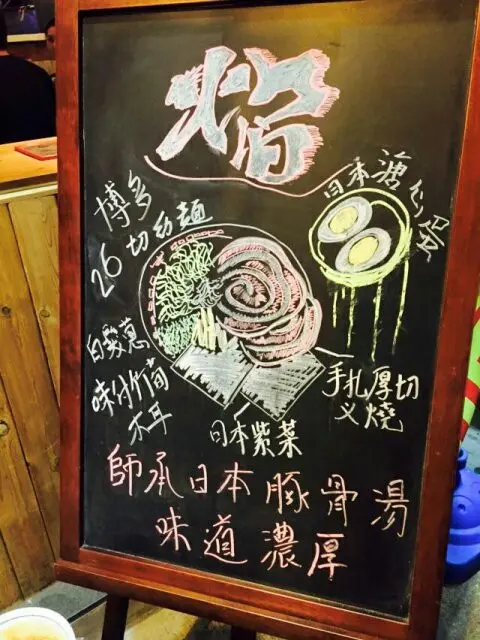 焰
日本溏心蛋
博多
26切幼麵
白髮蔥
味付筍
木耳
手扎厚切
义燒
日本紫菜
師承日本豚骨湯
味道濃厚